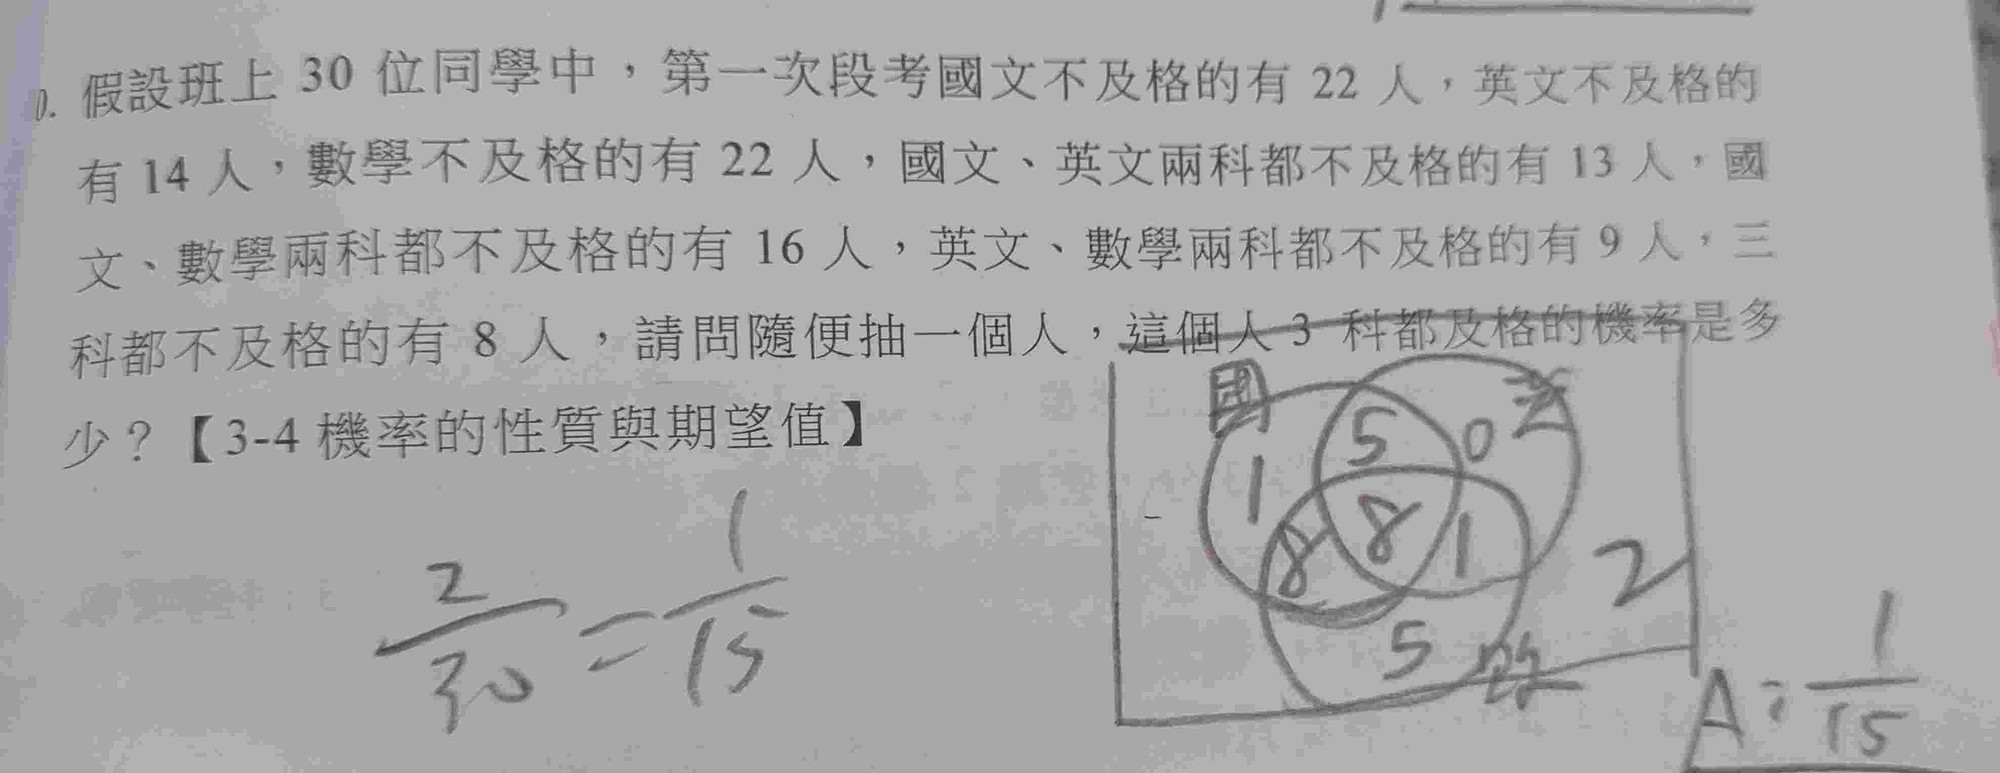 0. 假設班上 30 位同學中，第一次段考國文不及格的有 22 人，英文不及格的
有 14 人，數學不及格的有 22 人，國文、英文兩科都不及格的有 13 人，國
文、數學兩科都不及格的有 16 人，英文、數學兩科都不及格的有 9 人，三
科都不及格的有 8 人，請問隨便抽一個人，這個人 3 科都及格的機率是多
少？【3-4 機率的性質與期望值】
國 英
5 0
1
8 8 1 2
5 數
2/30 = 1/15
A: 1/15